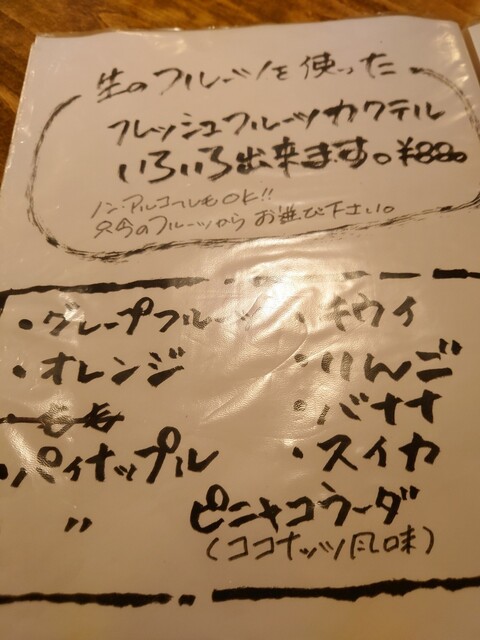 生のフルーツを使った
フレッシュフルーツカクテル
いろいろ出来ます。¥880
ノンアルコールもOK!!
只今のフルーツから お選び下さい。
・グレープフルーツ ・キウイ
・オレンジ ・りんご
・もも ・バナナ
・パイナップル ・スイカ
〃 ピニャコラーダ
(ココナッツ風味)